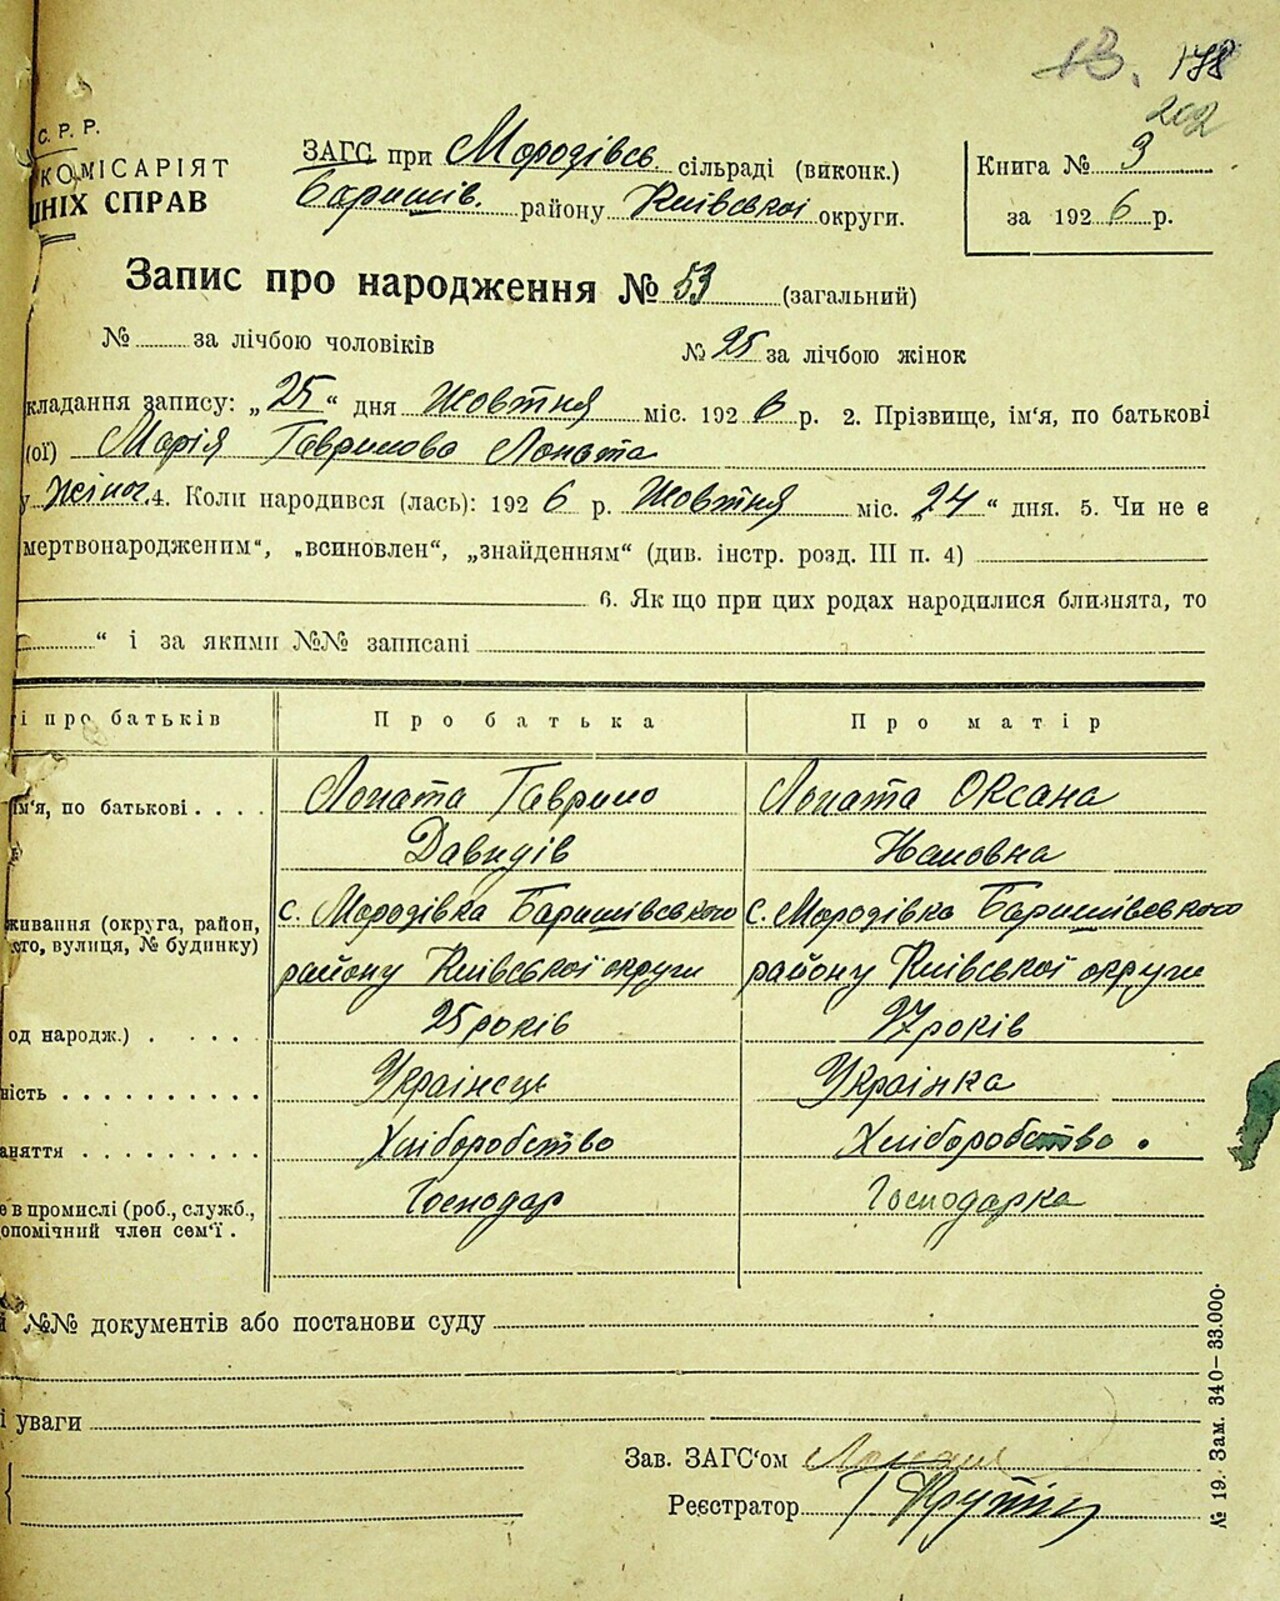 13. 178
202
С. Р. Р.
КОМІСАРІЯТ
ШНІХ СПРАВ
ЗАГС при Мородівсь. сільраді (виконк.)
Баришів. району Київської округи.
Книга № 3
за 1926 р.
Запис про народження № 53 (загальний)
№ за лічбою чоловіків № 25 за лічбою жінок
кладання запису: „25“ дня Жовтня міс. 1926 р. 2. Прізвище, ім'я, по батькові
(ої) Марія Гаврилова Лопата
у жіноч. 4. Коли народився (лась): 1926 р. Жовтня міс. „24“ дня. 5. Чи не є
мертвонародженим“, „всиновлен“, „знайденням“ (див. інстр. розд. III п. 4)
6. Як що при цих родах народилися близнята, то
“ і за якими №№ записані
і про батьків Про батька Про матір
ім'я, по батькові Лопата Гаврило Лопата Оксана
Давидів
живання (округа, район, с. Мородівка Баришівського с. Мородівка Баришівського
сто, вулиця, № будинку) району Київської округи району Київської округи
од народж.) 25 років 27 років
ність Українець Українка
аняття Хліборобство Хліборобство
е в промислі (роб., служб., Господар Господарка
опомічний член сем'ї
й №№ документів або постанови суду
і уваги
Зав. ЗАГС'ом Лопата
Реєстратор
№ 19. Зам. 340–33.000.